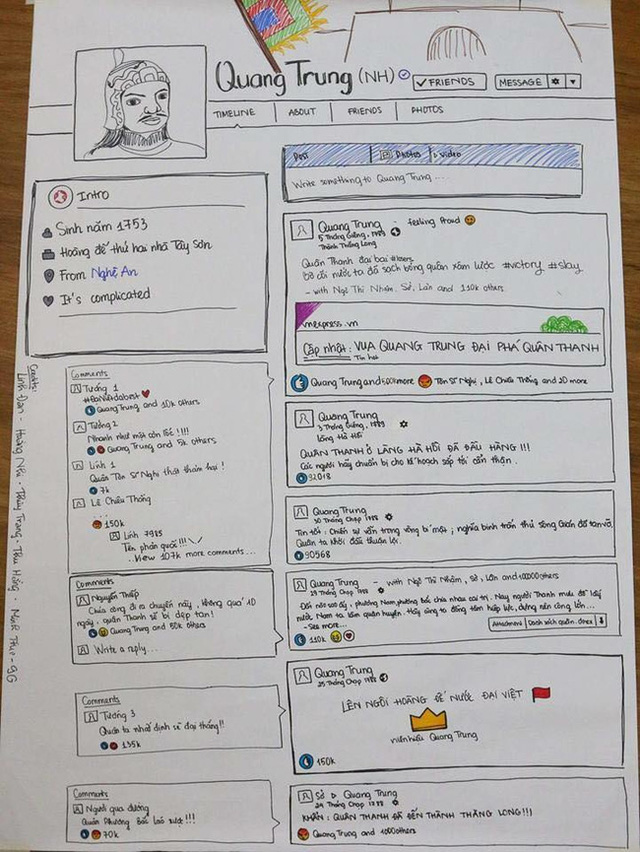 Quang Trung (NH)
✓ FRIENDS
MESSAGE
TIMELINE
ABOUT
FRIENDS
PHOTOS
Intro
Sinh năm 1753
Hoàng đế thứ hai nhà Tây Sơn
From Nghệ An
It's complicated
Post
Photos
Video
Write something to Quang Trung ....
Quang Trung - feeling Proud
5 Tháng Giêng, 1789
Thành Thăng Long
Quân Thanh đại bại #losers
Bờ cõi nước ta đã sạch bóng quân xâm lược #victory #slay
- with Ngô Thì Nhậm, Sở, Lân and 110k others
vnexpress.vn
Cập nhật: VUA QUANG TRUNG ĐẠI PHÁ QUÂN THANH
Tin hot
Quang Trung and 500k more
Tôn Sĩ Nghị, Lê Chiêu Thống and 20 more
Comments
Tướng 1
Quang Trung and 10k others
Tướng 2
Nhanh như một cơn lốc !!!!
Quang Trung and 5k others
Lính 1
Quân Tôn Sĩ Nghị thật thảm hại!
7k
Lê Chiêu Thống
...
150k
Lính 7985
Tên phản quốc!!!
...View 107k more comments...
Quang Trung
3 Tháng Giêng, 1789
Làng Hà Hồi
QUÂN THANH Ở LÀNG HÀ HỒI ĐÃ ĐẦU HÀNG!!!
Các ngươi hãy chuẩn bị cho kế hoạch sắp tới cẩn thận.
92018
Quang Trung
30 Tháng Chạp 1788
Tin tốt: Chiến sự vẫn trong vòng bí mật; nghĩa binh trấn thủ sông Gián đã tan vỡ.
Quân ta khởi đầu thuận lợi.
90568
Comments
Nguyễn Thiếp
Chúa công đi ra chuyến này, không quá 10
ngày, quân Thanh sẽ bị dẹp tan!
Quang Trung and 80k others
Write a reply...
Quang Trung - with Ngô Thì Nhậm, Sở, Lân and 100000 others
29 Tháng Chạp 1788
phương Nam, phương Bắc chia nhau cai trị. Nay người Thanh mưu đồ lấy
nước Nam ta làm quận huyện. Hãy cùng ta đồng tâm hiệp lực, dựng nên công lớn...
-See more...
Attachment
Danh sách quân.docx
110k
Comments
Tướng 3
Quân ta nhất định sẽ đại thắng!!
135k
Quang Trung
25 Tháng Chạp 1788
LÊN NGÔI HOÀNG ĐẾ NƯỚC ĐẠI VIỆT
niên hiệu Quang Trung
150k
Comments
Người qua đường
Quân Phương Bắc láo xược!!!
70k
Sở ▷ Quang Trung
24 Tháng Chạp 1788
KHẨN: QUÂN THANH ĐÃ ĐẾN THÀNH THĂNG LONG!!!
Quang Trung and 1000 others
Credits:
Linh Đan - Hoàng Nhi - Thùy Trang - Thu Hằng - Minh Thư - 9G